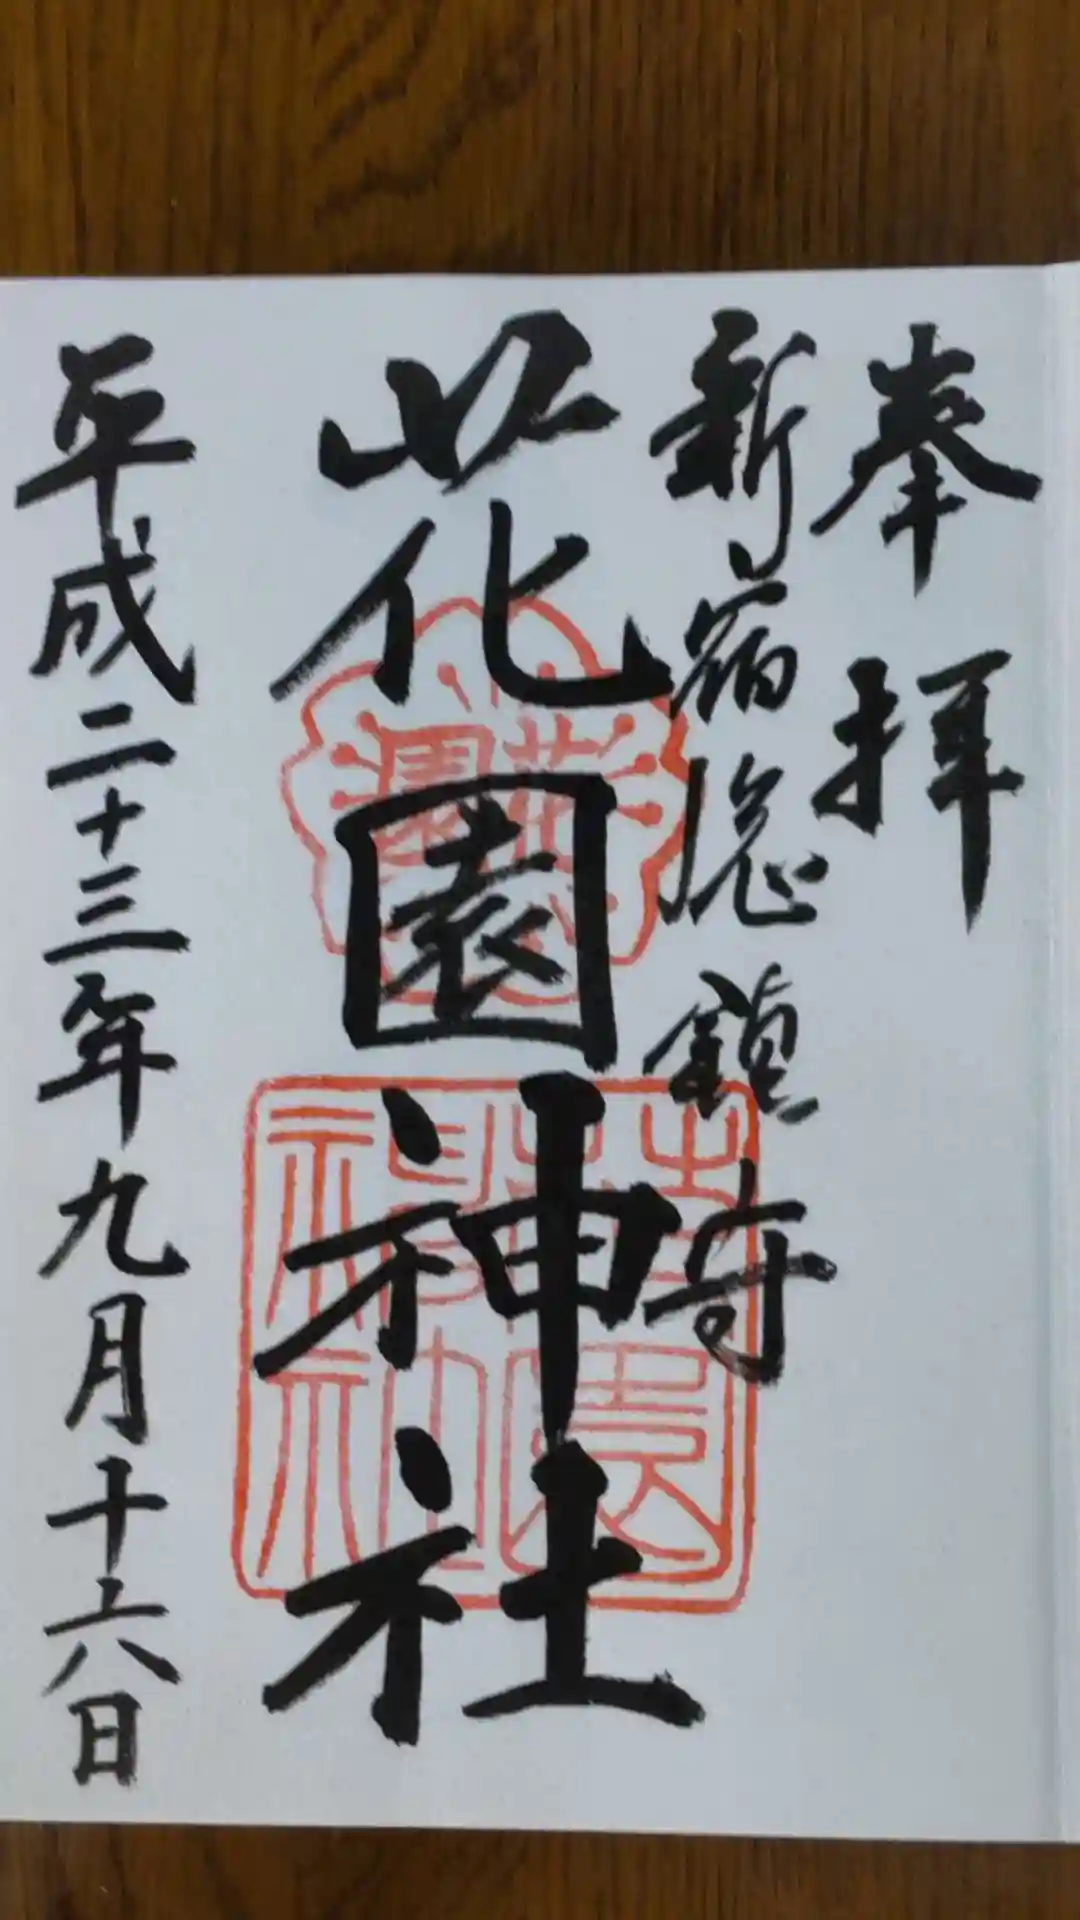 奉拝
新宿総鎮守
花園神社
平成二十三年九月十六日
花園
花園神社